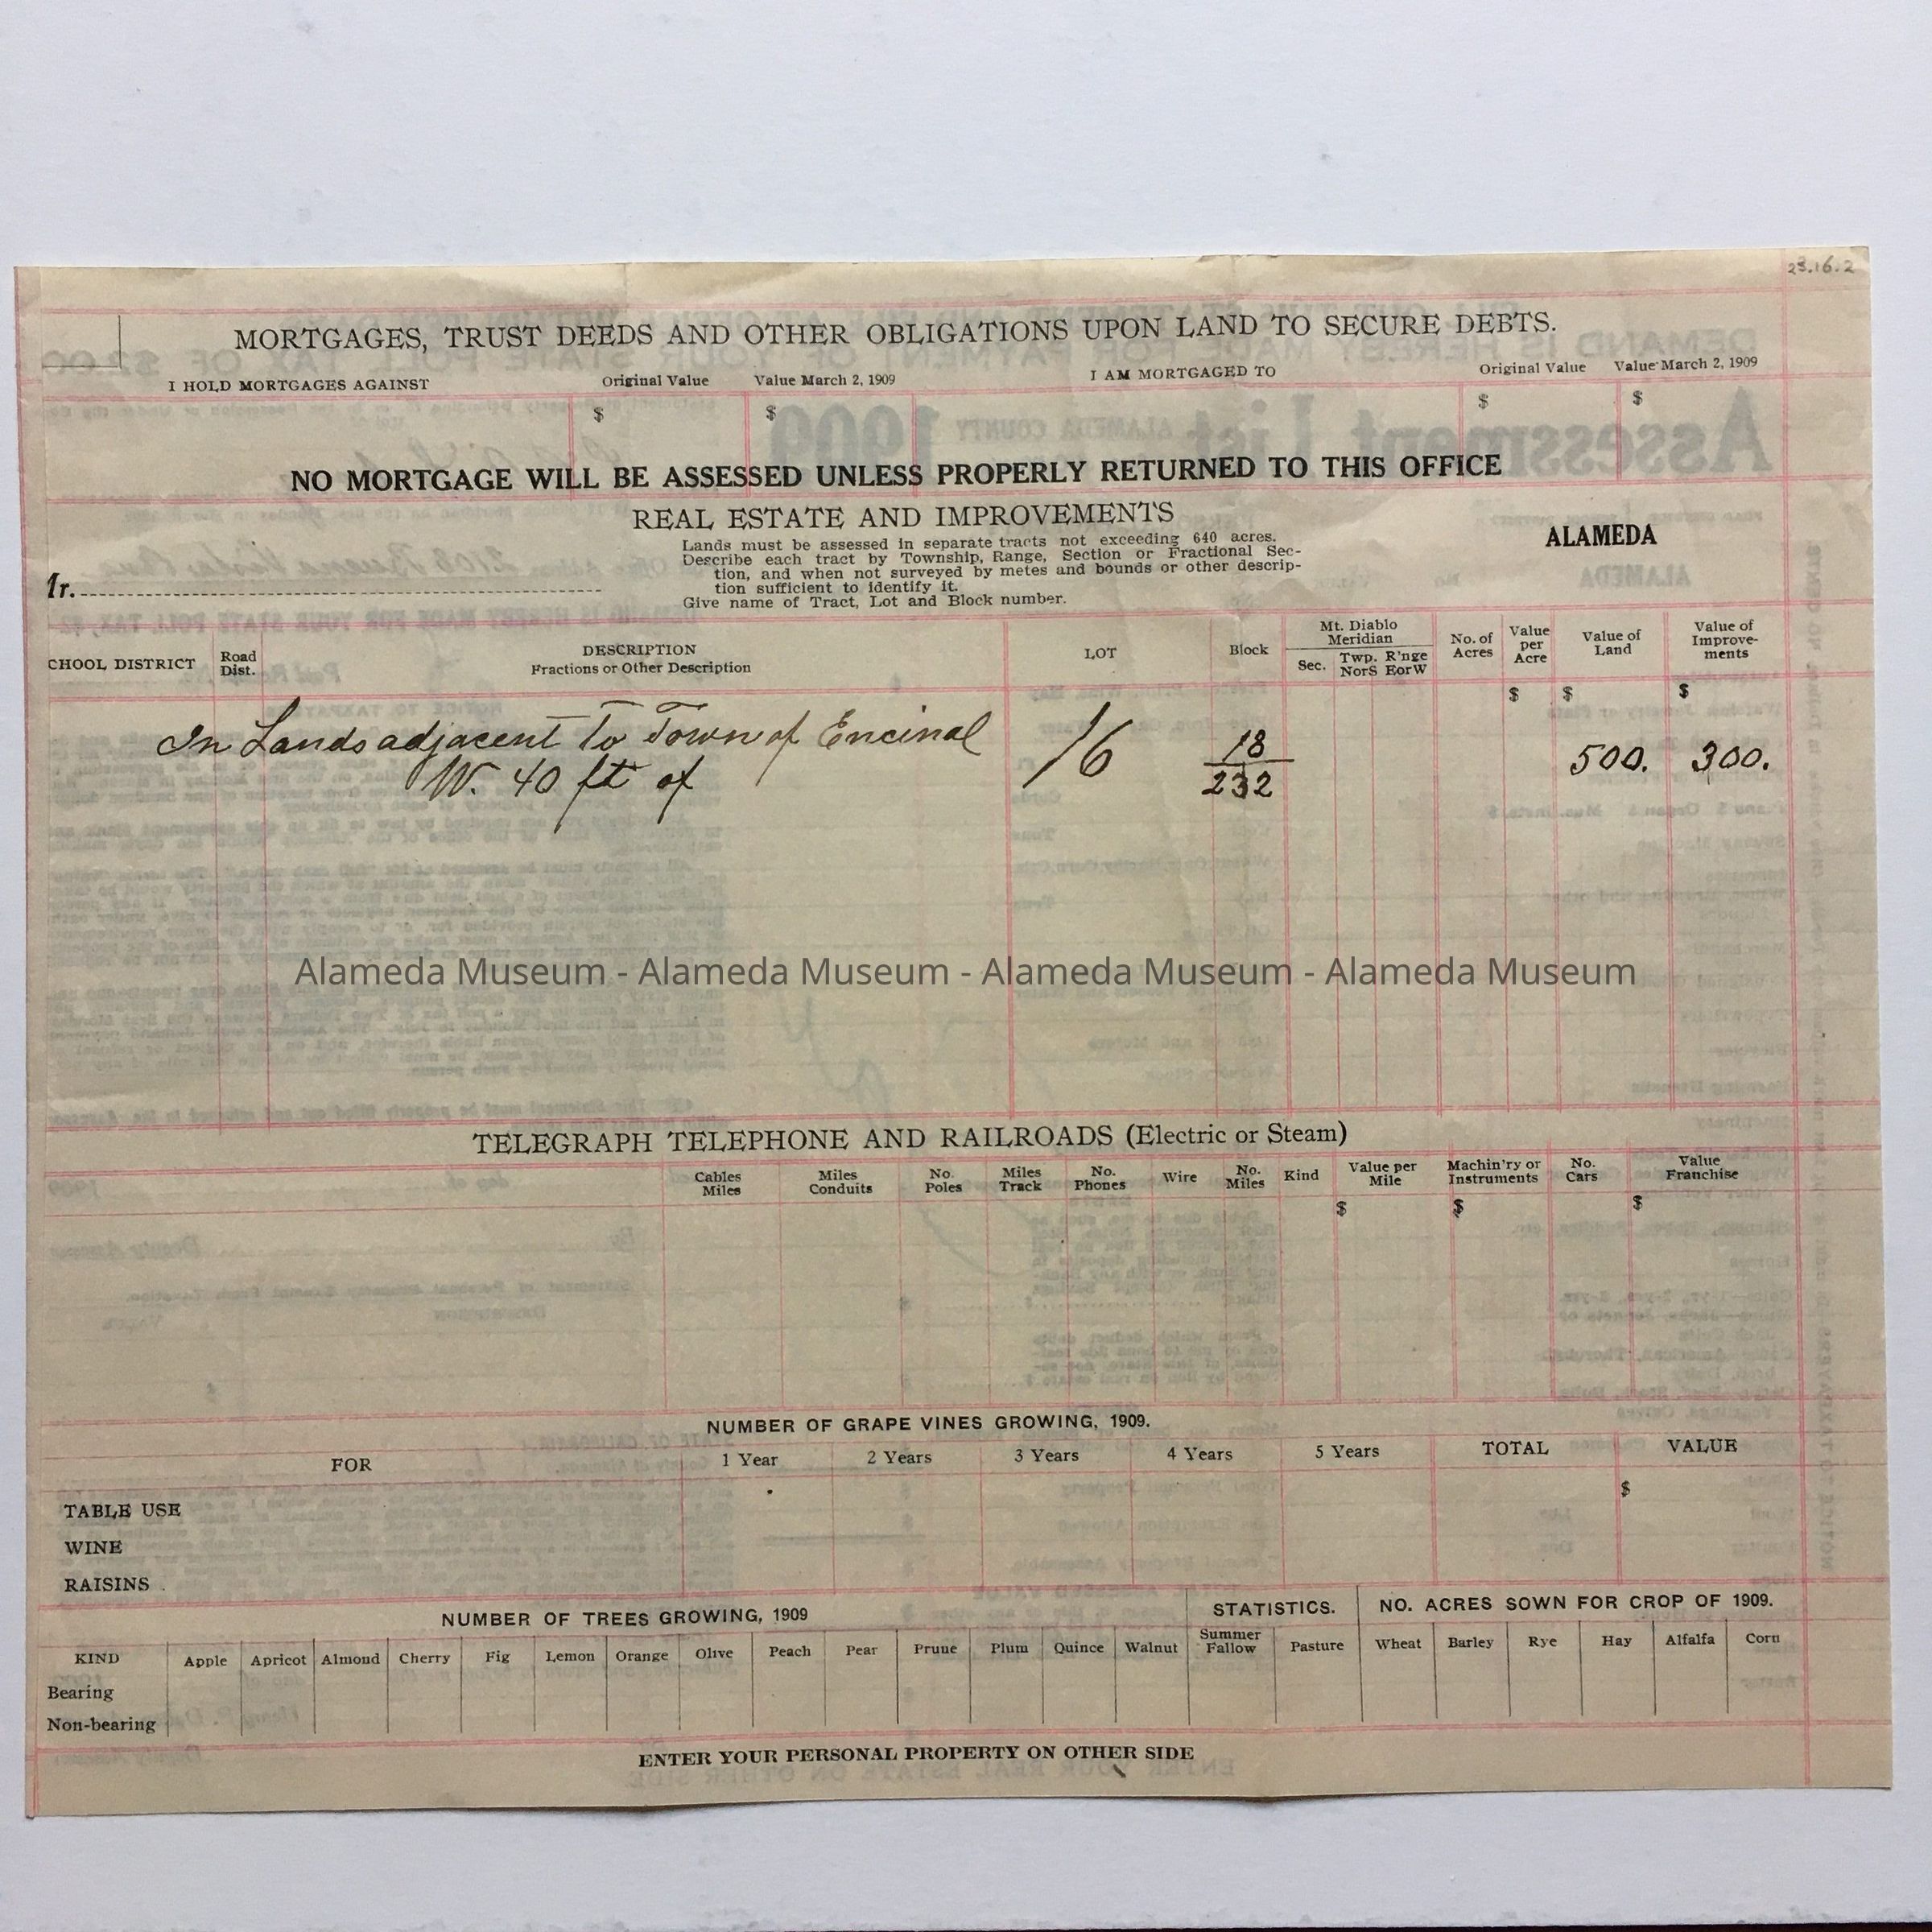 23.16.2
MORTGAGES, TRUST DEEDS AND OTHER OBLIGATIONS UPON LAND TO SECURE DEBTS.
I HOLD MORTGAGES AGAINST Original Value Value March 2, 1909 I AM MORTGAGED TO Original Value Value March 2, 1909
$ $ $ $
NO MORTGAGE WILL BE ASSESSED UNLESS PROPERLY RETURNED TO THIS OFFICE
REAL ESTATE AND IMPROVEMENTS
ALAMEDA
Lands must be assessed in separate tracts not exceeding 640 acres.
Describe each tract by Township, Range, Section or Fractional Sec-
tion, and when not surveyed by metes and bounds or other descrip-
tion sufficient to identify it.
Give name of Tract, Lot and Block number.
r.
CHOOL DISTRICT Road Dist. DESCRIPTION Fractions or Other Description LOT Block Mt. Diablo Meridian Sec. Twp. NorS R'nge EorW No. of Acres Value per Acre Value of Land Value of Improve-ments
$ $ $
In Lands adjacent To Town of Encinal 16 18 500. 300.
W. 40 ft of 232
Alameda Museum - Alameda Museum - Alameda Museum - Alameda Museum
TELEGRAPH TELEPHONE AND RAILROADS (Electric or Steam)
Cables Miles Miles Conduits No. Poles Miles Track No. Phones Wire No. Miles Kind Value per Mile Machin'ry or Instruments No. Cars Value Franchise
$ $ $
NUMBER OF GRAPE VINES GROWING, 1909.
FOR 1 Year 2 Years 3 Years 4 Years 5 Years TOTAL VALUE
$
TABLE USE
WINE
RAISINS
NUMBER OF TREES GROWING, 1909 STATISTICS. NO. ACRES SOWN FOR CROP OF 1909.
KIND Apple Apricot Almond Cherry Fig Lemon Orange Olive Peach Pear Prune Plum Quince Walnut Summer Fallow Pasture Wheat Barley Rye Hay Alfalfa Corn
Bearing
Non-bearing
ENTER YOUR PERSONAL PROPERTY ON OTHER SIDE